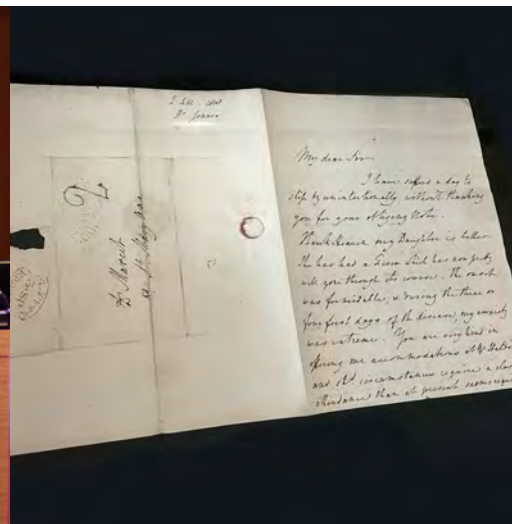 2 Feb.
Dr Jenner
Dr Marcet
St Mary Axe
My dear Sir
I have suffered a day to
slip by unintentionally without thanking
you for your obliging Note.
Thank Heaven my Daughter is better.
She has had a Fever which has now pretty
well gone through its course. The onset
was formidable, & during the three or
four first days of the disease, my anxiety
was extreme. You are very kind in
offering me accommodations at
and should circumstances require a closer
attendance than at present seems